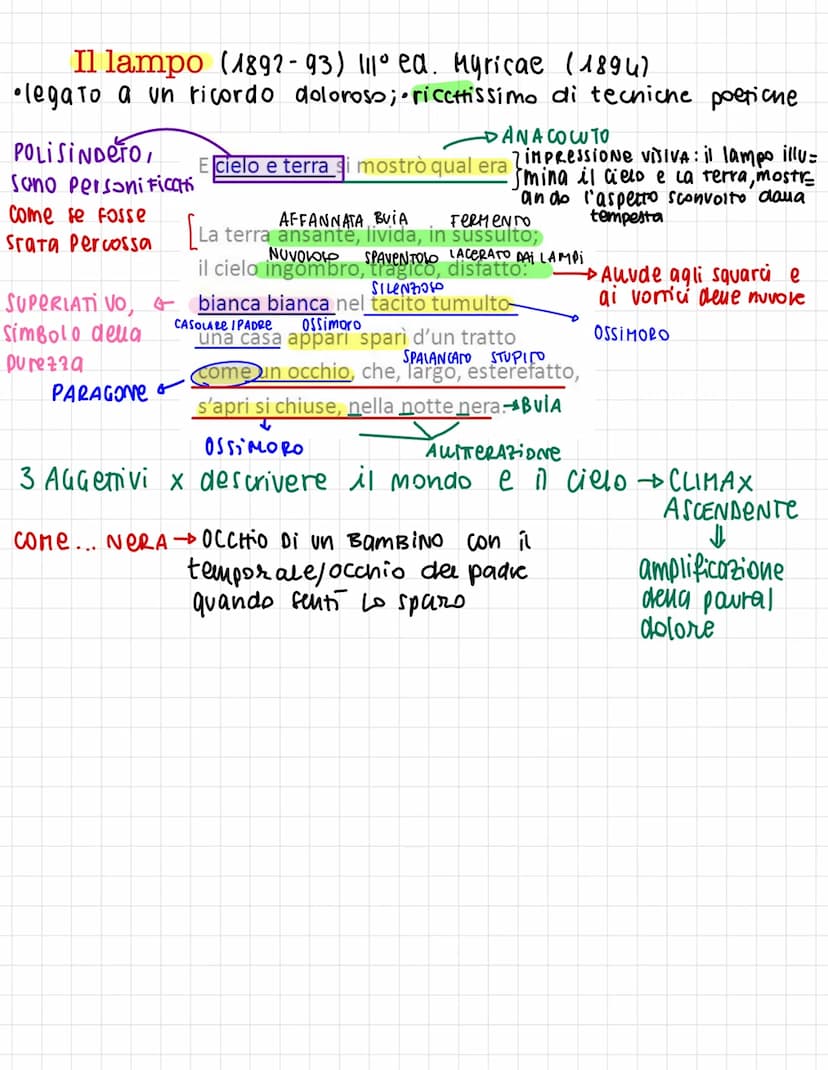 Il lampo (1892-93) III° ed. Myricae (1894)
•legato a un ricordo doloroso; •ricchissimo di tecniche poetiche
POLISINDETO,
sono personificati
come se fosse
stata percossa
ANACOLUTO
E cielo e terra si mostrò qual era
impressione visiva: il lampo illu=
mina il cielo e la terra, mostr=
ando l'aspetto sconvolto dalla
tempesta
AFFANNATA BUIA FERMENTO
La terra ansante, livida, in sussulto;
NUVOLOLO SPAVENTOLO LACERATO DAI LAMPI
il cielo ingombro, tragico, disfatto:
→ Allude agli squarci e
ai vortici delle nuvole
SILENZIOSO
SUPERLATIVO, ←
simbolo della
purezza
bianca bianca nel tacito tumulto
OSSIMORO
CASOLARE/PADRE OSSIMORO
una casa apparì sparì d'un tratto
SPALANCATO STUPITO
come un occhio, che, largo, esterefatto,
PARAGONE
s'aprì si chiuse, nella notte nera. → BUIA
OSSIMORO
ALLITTERAZIONE
3 AGGETTIVI x descrivere il mondo e il cielo → CLIMAX
ASCENDENTE
⇓
amplificazione
della paura/
dolore
COME... NERA → OCCHIO DI UN BAMBINO CON il
temporale/occhio del padre
quando sentì lo sparo